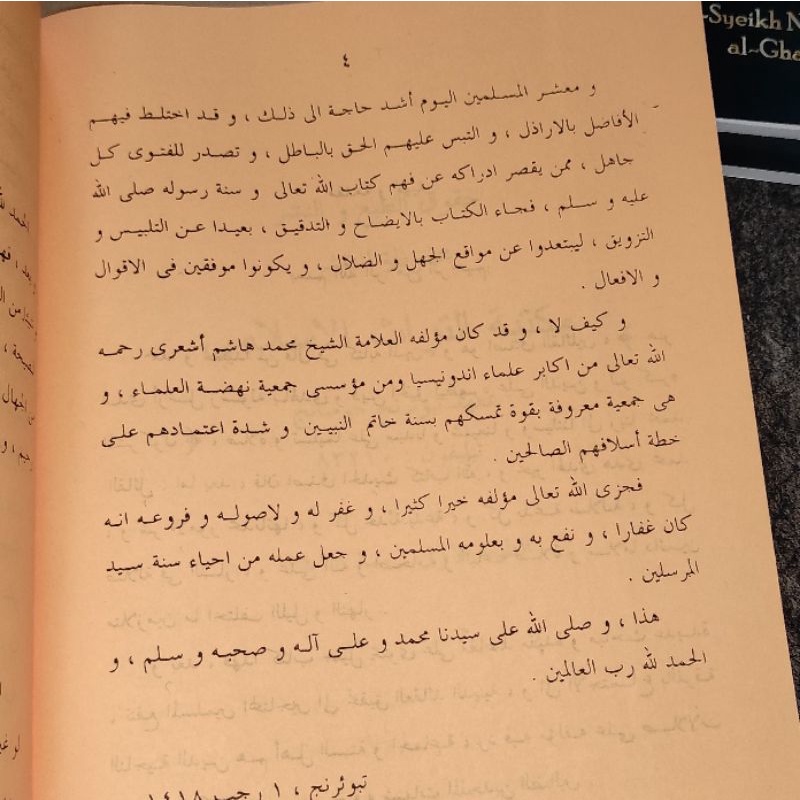 ٤
و معشر المسلمين اليوم أشد حاجة الى ذلك ، و قد اختلط فيهم
الأفاضل بالاراذل ، و التبس عليهم الحق بالباطل ، و تصدر للفتوى كل
جاهل ، ممن يقصر ادراكه عن فهم كتاب الله تعالى و سنة رسوله صلى الله
عليه و سلم ، فجاء الكتاب بالايضاح و التدقيق ، بعيدا عن التلبيس و
التزويق ، ليبتعدوا عن مواقع الجهل و الضلال ، و يكونوا موفقين فى الاقوال
و الافعال .
و كيف لا ، و قد كان مؤلفه العلامة الشيخ محمد هاشم أشعرى رحمه
الله تعالى من اكابر علماء اندونيسيا ومن مؤسسى جمعية نهضة العلماء ، و
هى جمعية معروفة بقوة تمسكهم بسنة خاتم النبيين و شدة اعتمادهم على
خطة أسلافهم الصالحين .
فجزى الله تعالى مؤلفه خيرا كثيرا ، و غفر له و لاصوله و فروعه انه
كان غفارا ، و نفع به و بعلومه المسلمين ، و جعل عمله من احياء سنة سيد
المرسلين .
هذا ، و صلى الله على سيدنا محمد و على آله و صحبه و سلم ، و
الحمد لله رب العالمين .
تبوئرنج ، ١ رجب ١٤١٨
-Syeikh
al-Gha